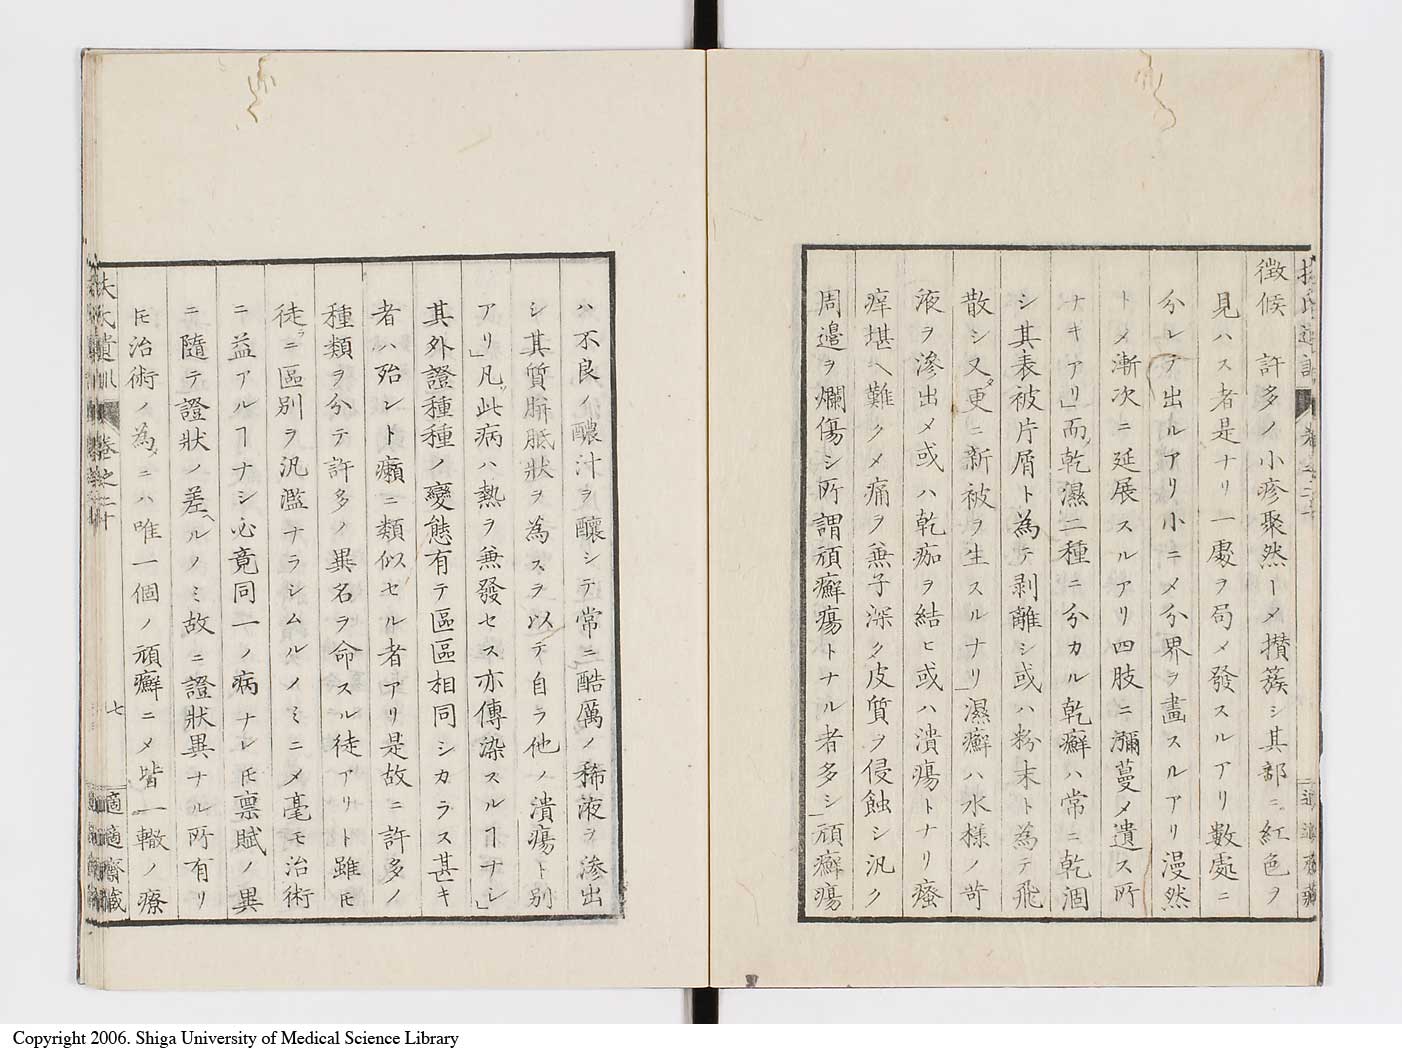 徴候 許多ノ小疹聚然トシ攅簇シ其部ニ紅色ヲ
見ハス者是ナリ一處ヲ局メ發スルアリ數處ニ
分レテ出ルアリ小ニメ分界ヲ畫スルアリ漫然
トメ漸次ニ延展スルアリ四肢ニ瀰蔓メ遺ス所
ナキアリ」而乾濕二種ニ分カル乾癬ハ常ニ乾涸
シ其表被片屑ト為テ剥離シ或ハ粉末ト為テ飛
散シ又更ニ新被ヲ生スルナリ」濕癬ハ水様ノ苛
液ヲ滲出メ或ハ乾痂ヲ結ヒ或ハ潰瘍トナリ瘙
痒堪ヘ難クメ痛ヲ兼子深ク皮質ヲ侵蝕シ汎ク
周邉ヲ爛傷シ所謂頑癬瘍トナル者多シ」頑癬瘍
ハ不良ノ醲汁ヲ釀シテ常ニ酷厲ノ稀液ヲ滲出
シ其質胼胝状ヲ為スヲ以テ自ラ他ノ潰瘍ト別
アリ」凡此病ハ熱ヲ兼發セス亦傳染スルヿナシ」
其外證種種ノ變態有テ區區相同シカラス甚キ
者ハ殆ント癩ニ類似セル者アリ是故ニ許多ノ
種類ヲ分テ許多ノ異名ヲ命スル徒アリト雖モ
徒ラニ區別ヲ汎濫ナラシムルノミニメ毫モ治術
ニ益アルヿナシ必竟同一ノ病ナレ圧稟賦ノ異
ニ隨テ證狀ノ差ヘルノミ故ニ證狀異ナル所有リ
圧治術ノ為ニハ唯一個ノ頑癬ニメ皆一轍ノ療
扶氏遺訓 巻之二十
七
適適齋藏